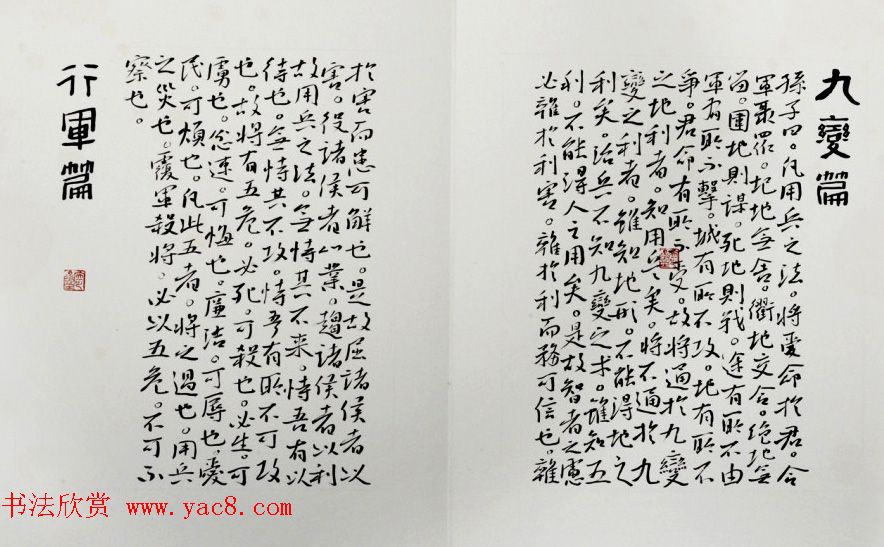 九變篇
孫子曰。凡用兵之法。將受命於君。合
軍聚眾。圮地無舍。衢地交合。絕地無
留。圍地則謀。死地則戰。途有所不由
軍有所不擊。城有所不攻。地有所不
爭。君命有所不受。故將通於九變
之地利者。知用兵矣。將不通於九
變之利者。雖知地形。不能得地之
利矣。治兵不知九變之术。雖知五
利。不能得人之用矣。是故智者之慮
必雜於利害。雜於利而務可信也。雜
於害而患可解也。是故屈諸侯者以
害。役諸侯者以業。趨諸侯者以利
故用兵之法。無恃其不来。恃吾有以
待也。無恃其不攻。恃吾有所不可攻
也。故將有五危。必死。可殺也。必生。可
虜也。忿速。可侮也。廉洁。可辱也。愛
民。可煩也。凡此五者。將之過也。用兵
之災也。覆軍殺將。必以五危。不可不
察也。
行軍篇
书法欣赏 www.yac8.com